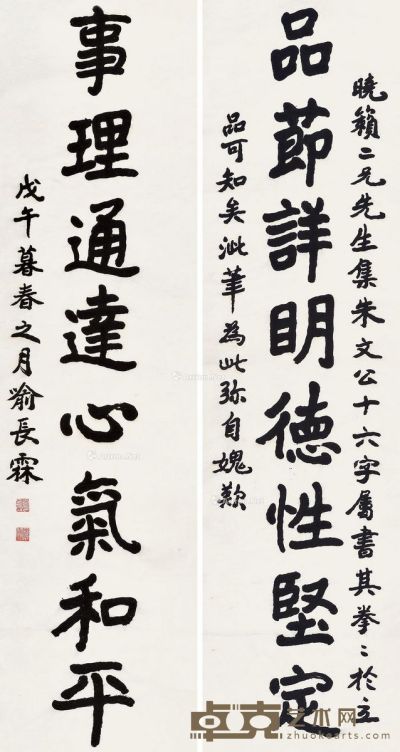 品節詳明德性堅定
曉籟二兄先生集朱文公十六字屬書其拳〻於立
品可知矣泚筆為此弥自媿歎
事理通達心氣和平
戊午暮春之月喻長霖
卓克艺术网
www.zhuokearts.com